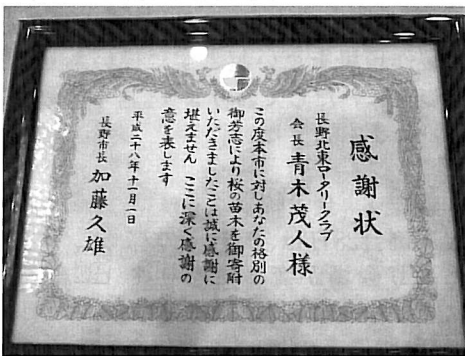 感謝状
長野北東ロータリークラブ
会長 青木茂人様
この度本市に対しあなたの格別の
御芳志により桜の苗木を御寄附
いただきましたことは誠に感謝に
堪えません ここに深く感謝の
意を表します
平成二十八年十一月一日
長野市長 加藤久雄